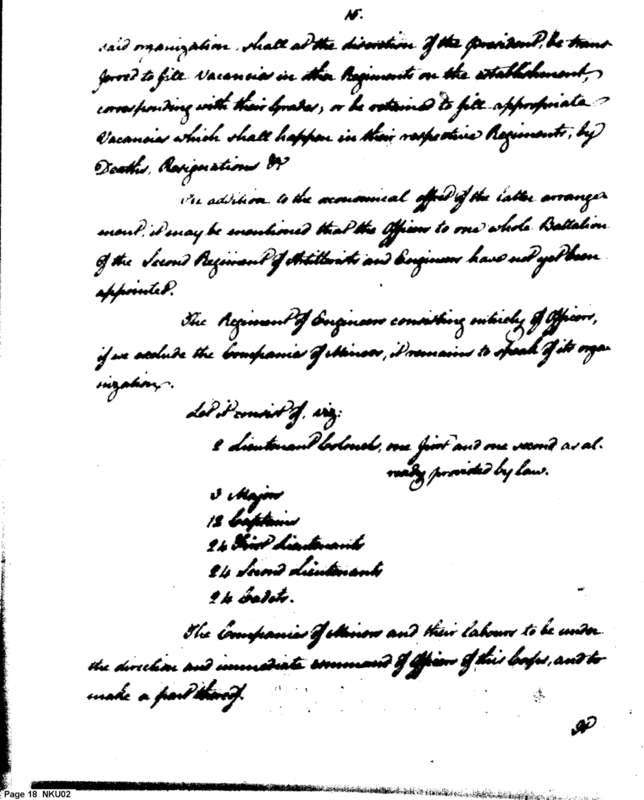 15.
said organization, shall at the discretion of the president, be trans
ferred to fill vacancies in other Regiments on the establishment,
corresponding with their Grades; or be retained to fill appropriate
Vacancies which shall happen in their respective Regiments, by
Deaths, Resignations &c
In addition to the economical effect of the latter arrange-
ment, it may be mentioned that the Officers to one whole Battalion
of the Second Regiment of Artillerists and Engineers have not yet been
appointed.
The Regiment of Engineers consisting entirely of Officers,
if we exclude the Companies of Miners, it remains to speak of its orga-
nization.
Let it consist of, viz:
2 Lieutenant Colonels, one first and one second as al-
ready provided by law.
3 Majors
12 Captains
24 First Lieutenants
24 Second Lieutenants
24 Cadets.
The Companies of Miners and their labours to be under
the direction and immediate command of Officers of this Corps, and to
make a part thereof.
Page 18 NKU02